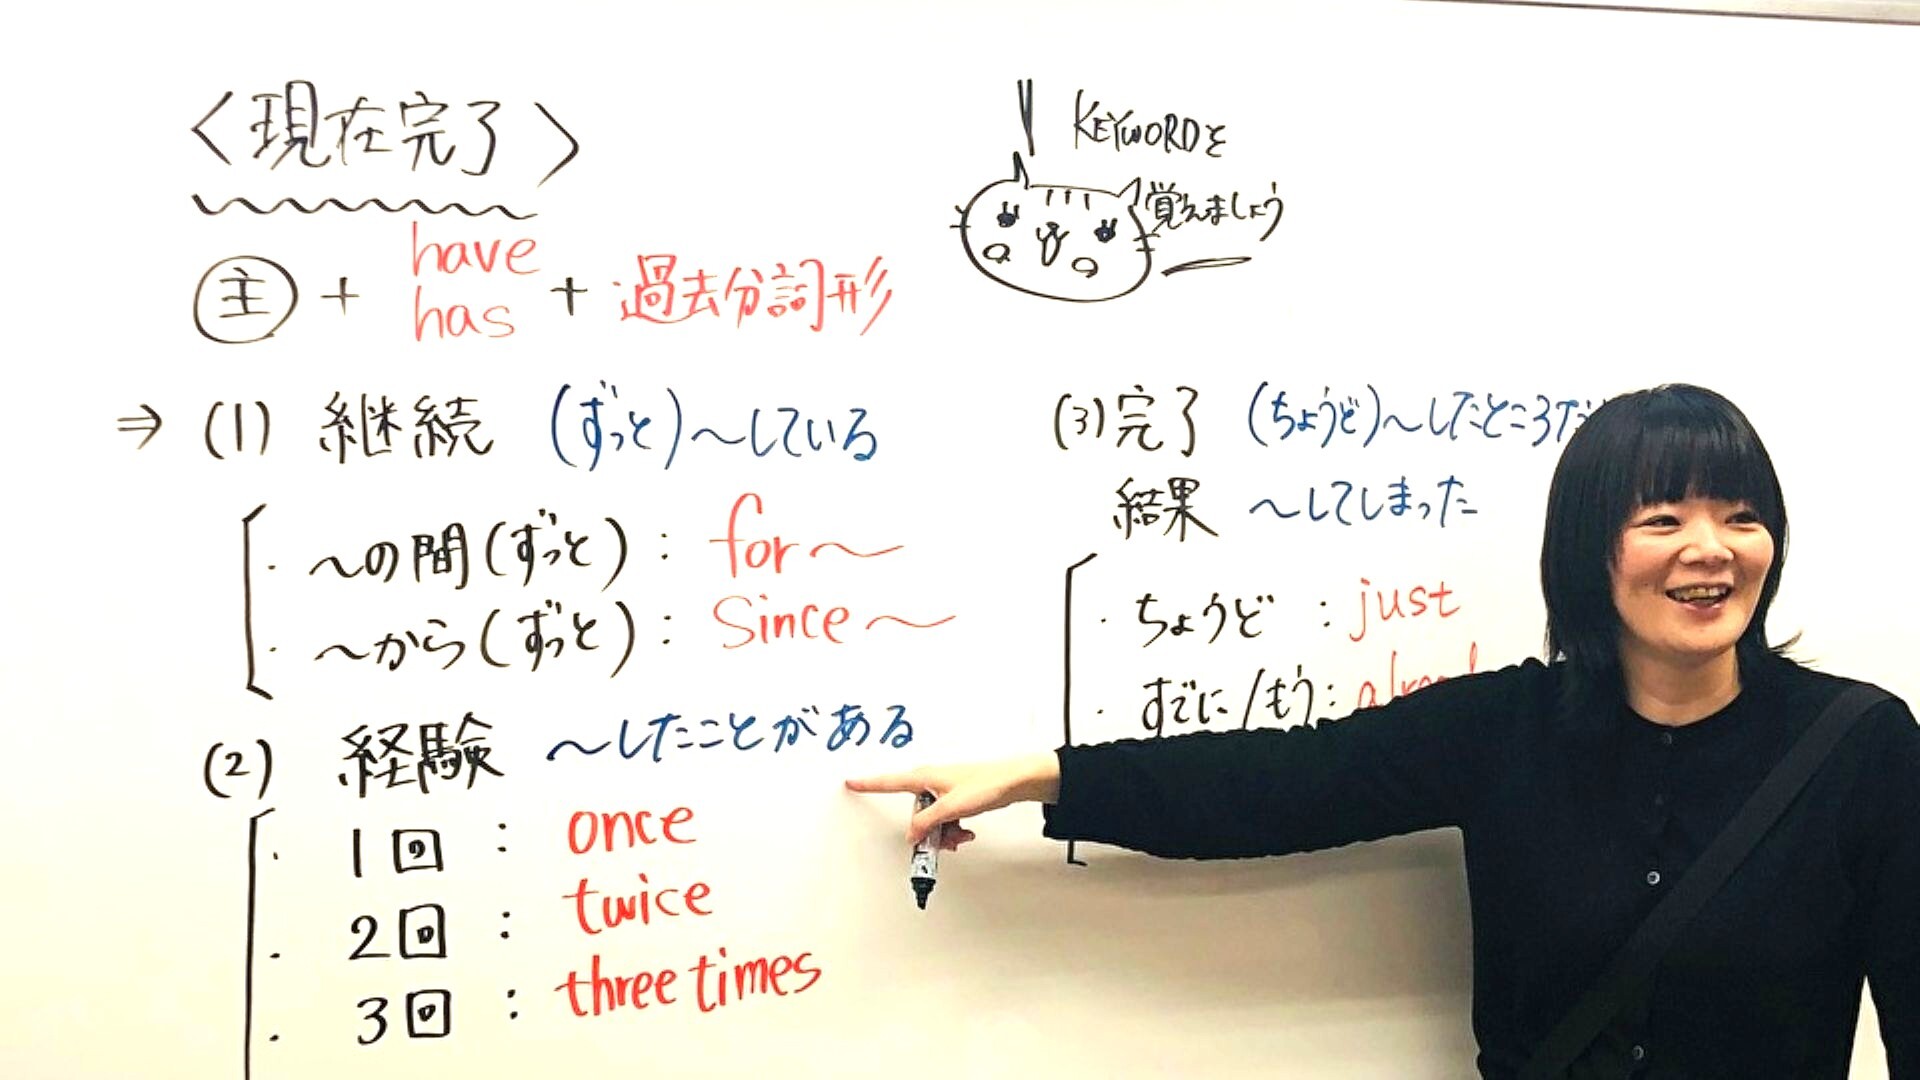 〈現在完了〉
主 + have has + 過去分詞形
KEYWORDを
覚えましょう
⇒ (1) 継続 (ずっと)〜している
・〜の間(ずっと) : for〜
・〜から(ずっと) : since〜
(2) 経験 〜したことがある
・1回 : once
・2回 : twice
・3回 : three times
(3) 完了 (ちょうど)〜したところだ
結果 〜してしまった
・ちょうど : just
・すでに/もう :